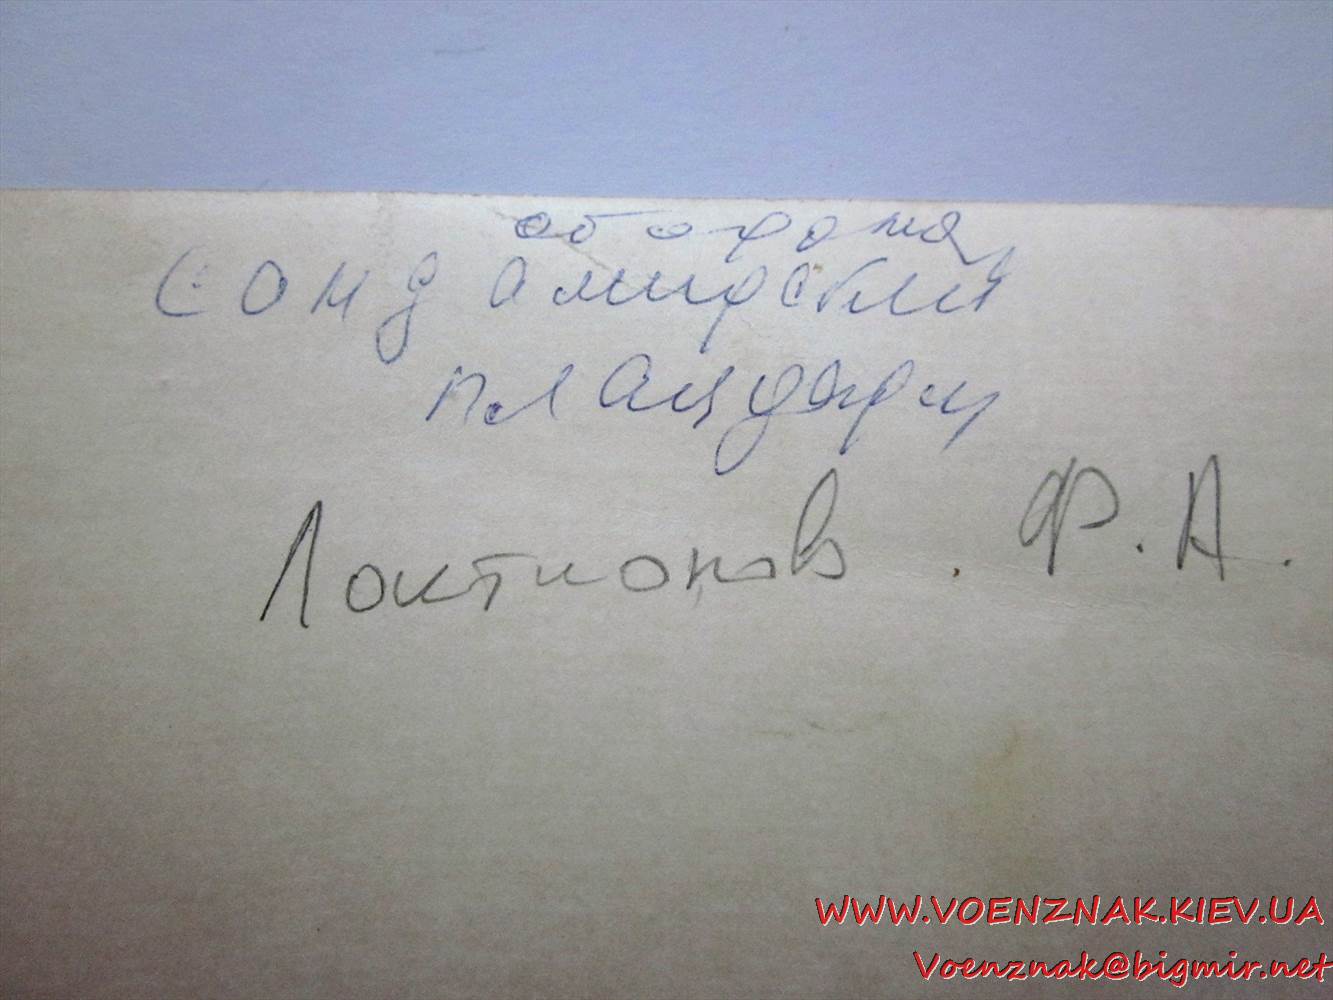 оборона
Сондомирский
плацдарм
Локтионов. Ф. А.
WWW.VOENZNAK.KIEV.UA
Voenznak@bigmir.net